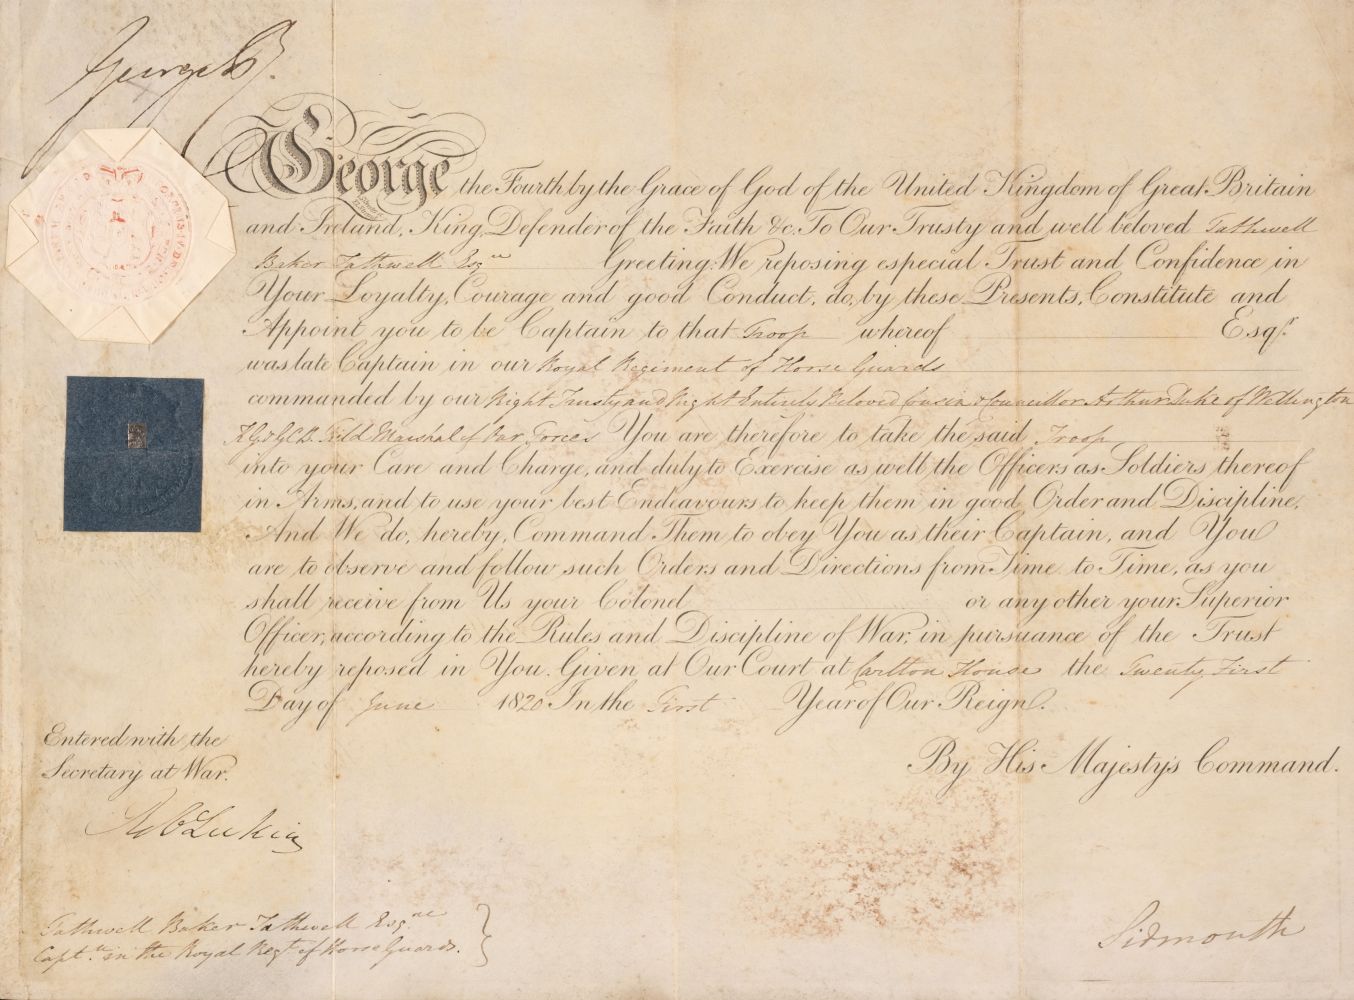 George R.
George the Fourth by the Grace of God of the United Kingdom of Great Britain
and Ireland, King, Defender of the Faith &c. To Our Trusty and well beloved Tathwell
Baker Tathwell Esqre Greeting: We reposing especial Trust and Confidence in
Your Loyalty, Courage and good Conduct, do, by these Presents, Constitute and
Appoint you to be Captain to that Troop whereof Esqr.
was late Captain in our Royal Regiment of Horse Guards
commanded by our Right Trusty and Right Entirely Beloved Cousin & Councillor Arthur Duke of Wellington
K.G. & G.C.B. Field Marshal of Our Forces You are therefore to take the said Troop
into your Care and Charge, and duly to Exercise as well the Officers as Soldiers thereof
in Arms, and to use your best Endeavours to keep them in good Order and Discipline,
And We do, hereby, Command Them to obey You as their Captain, and You
are to observe and follow such Orders and Directions from Time to Time, as you
shall receive from Us your Colonel or any other your Superior
Officer, according to the Rules and Discipline of War, in pursuance of the Trust
hereby reposed in You. Given at Our Court at Carlton House the Twenty First
Day of June 1820 In the First Year of Our Reign.
By His Majesty's Command.
Entered with the
Secretary at War.
Lukin
Tathwell Baker Tathwell Esqre
Captn. in the Royal Regt. of Horse Guards.
Sidmouth